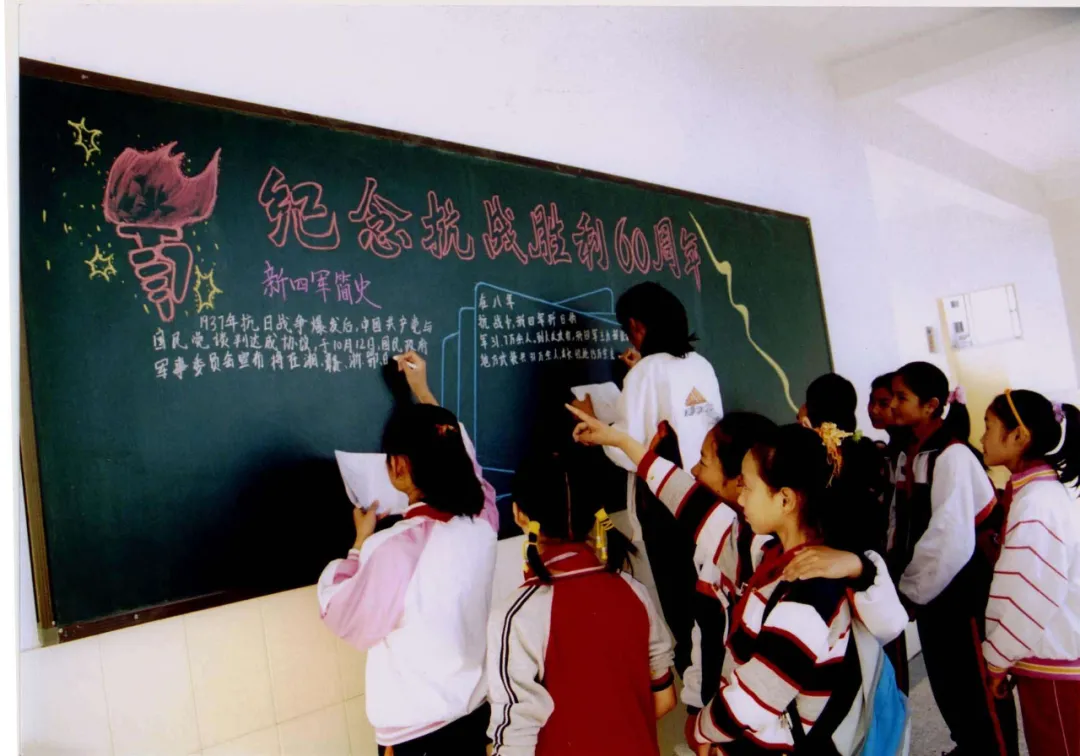 纪念抗战胜利60周年
新四军简史
1937年抗日战争爆发后,中国共产党与
国民党谈判达成协议,于10月12日,国民政府
军事委员会宣布将在湘、赣、
在八年
抗战中,新四军歼日
地方武装共